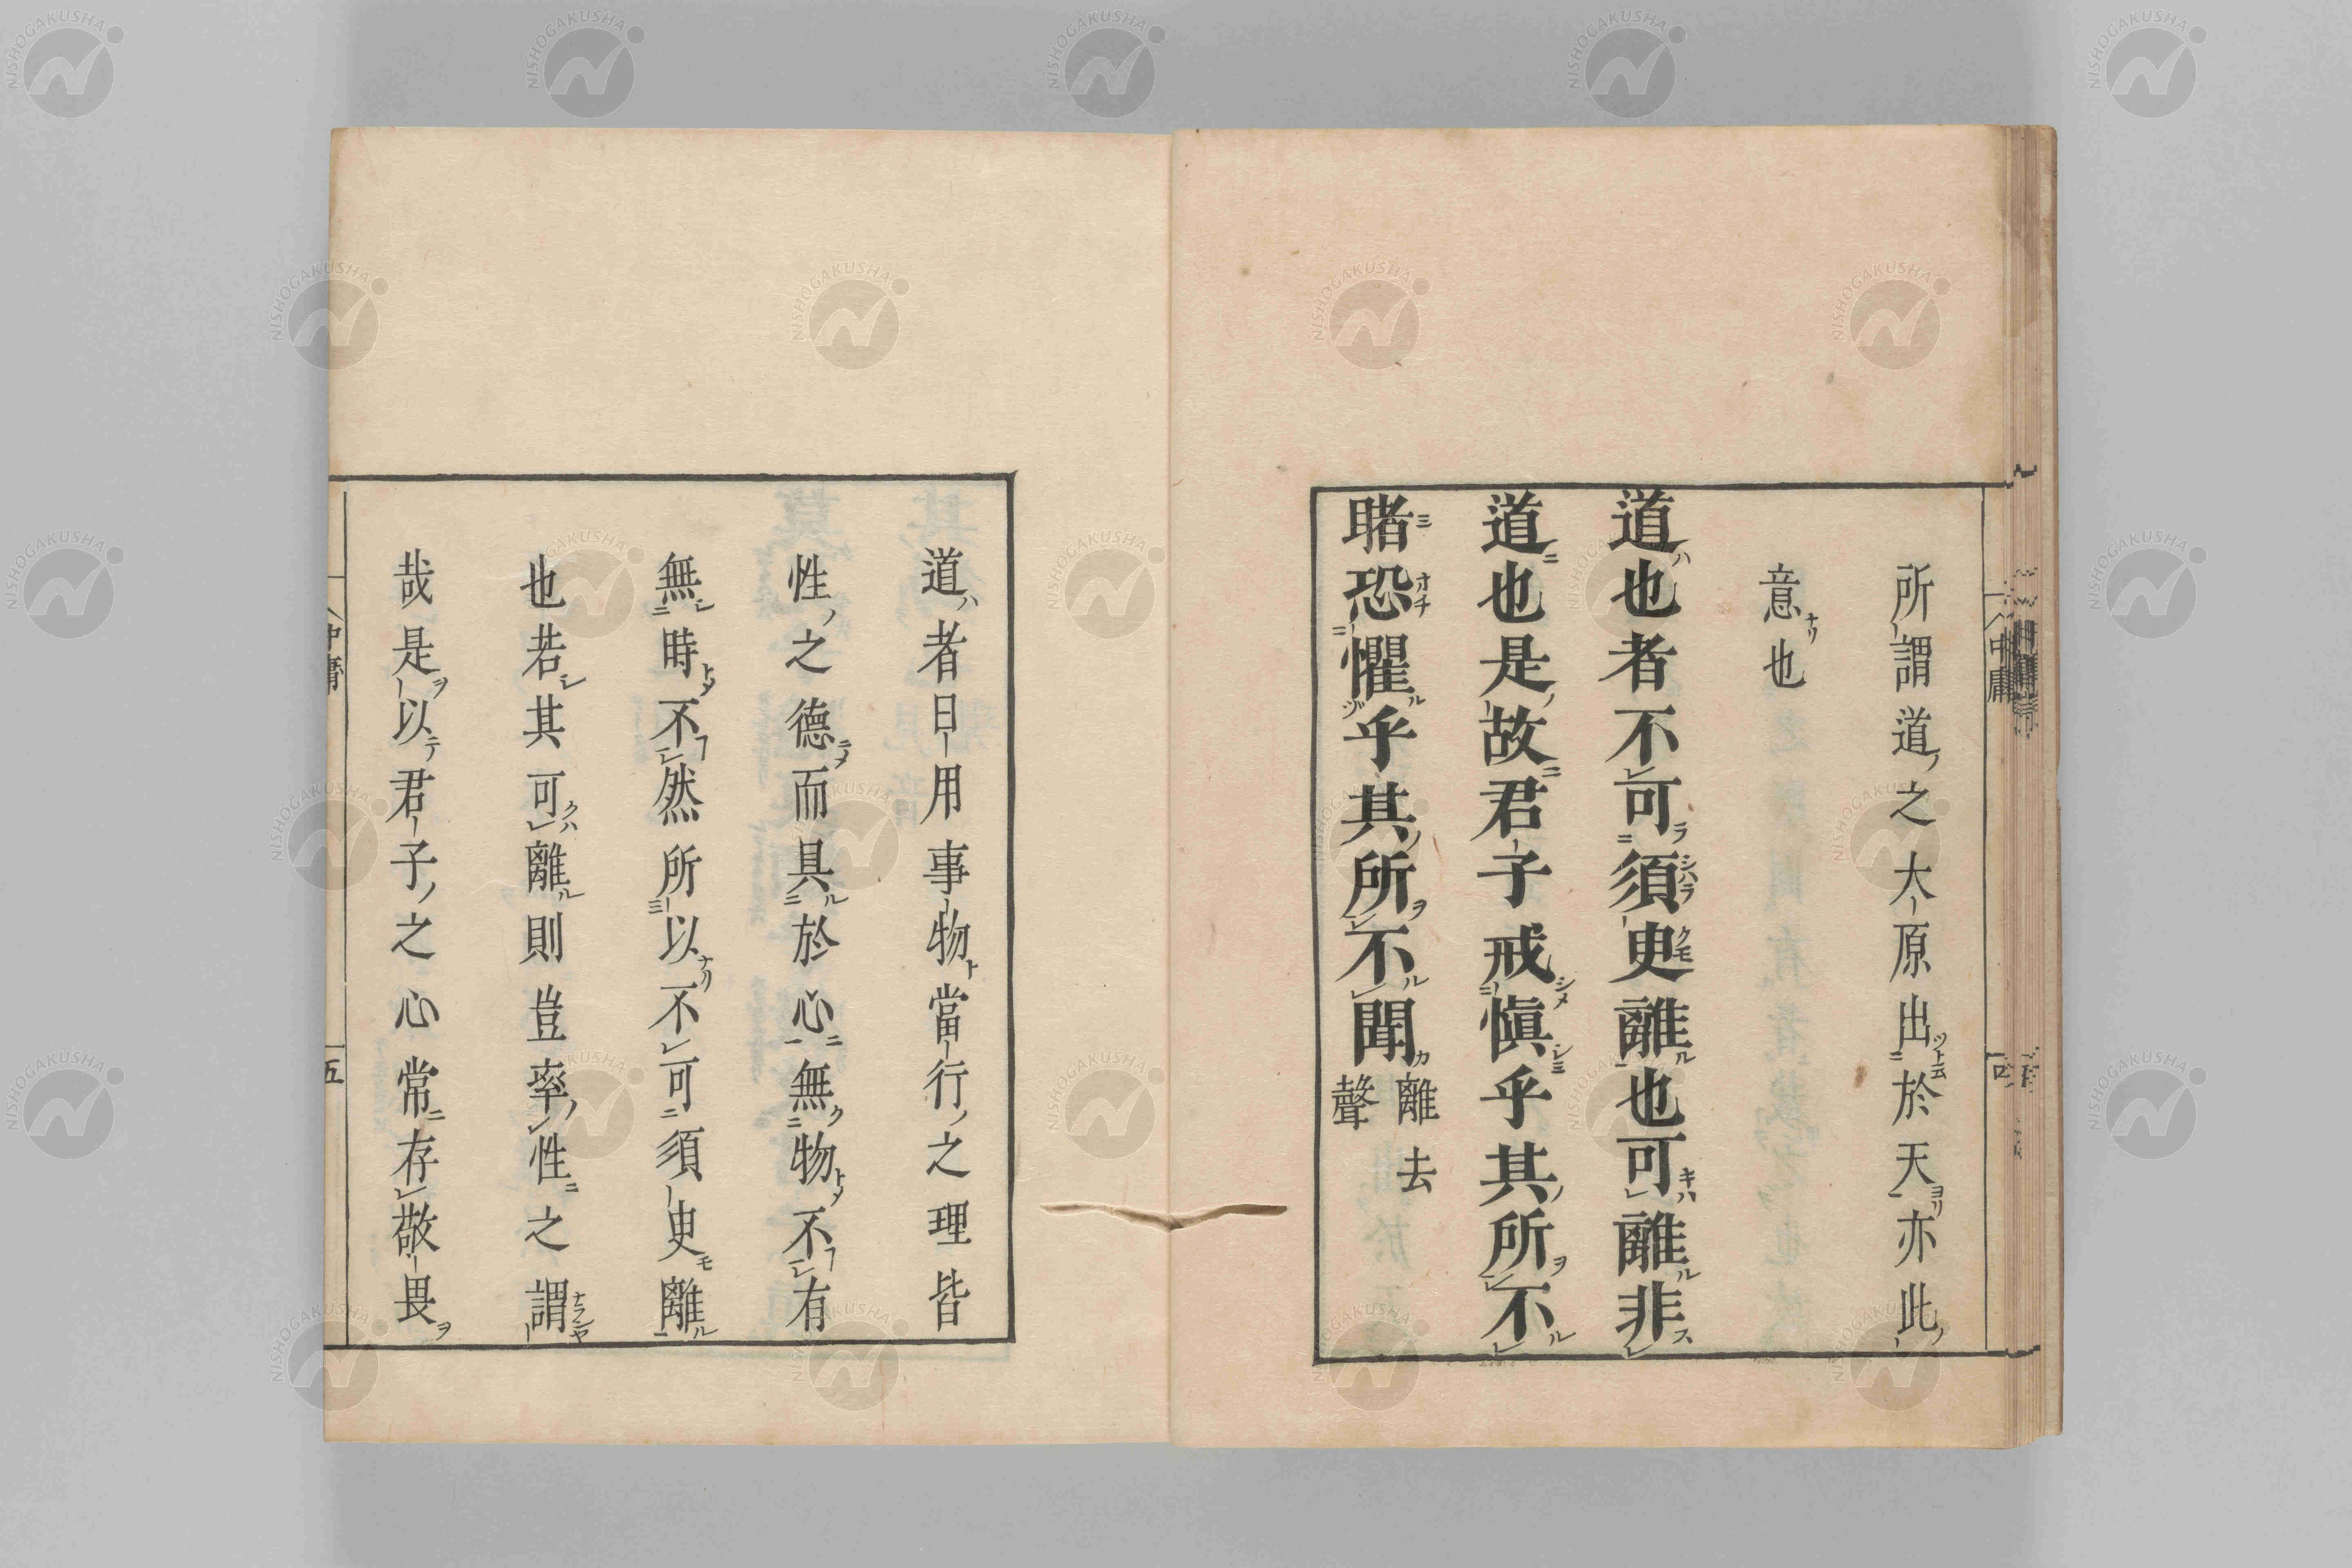 所謂道之大原出於天亦此
意也
道也者不可須臾離也可離非
道也是故君子戒愼乎其所不
睹恐懼乎其所不聞離去聲
道者日用事物當行之理皆
性之德而具於心無物不有
無時不然所以不可須臾離
也若其可離則豈率性之謂
哉是以君子之心常存敬畏
中庸
五
中庸
NISHOGAKUSHA